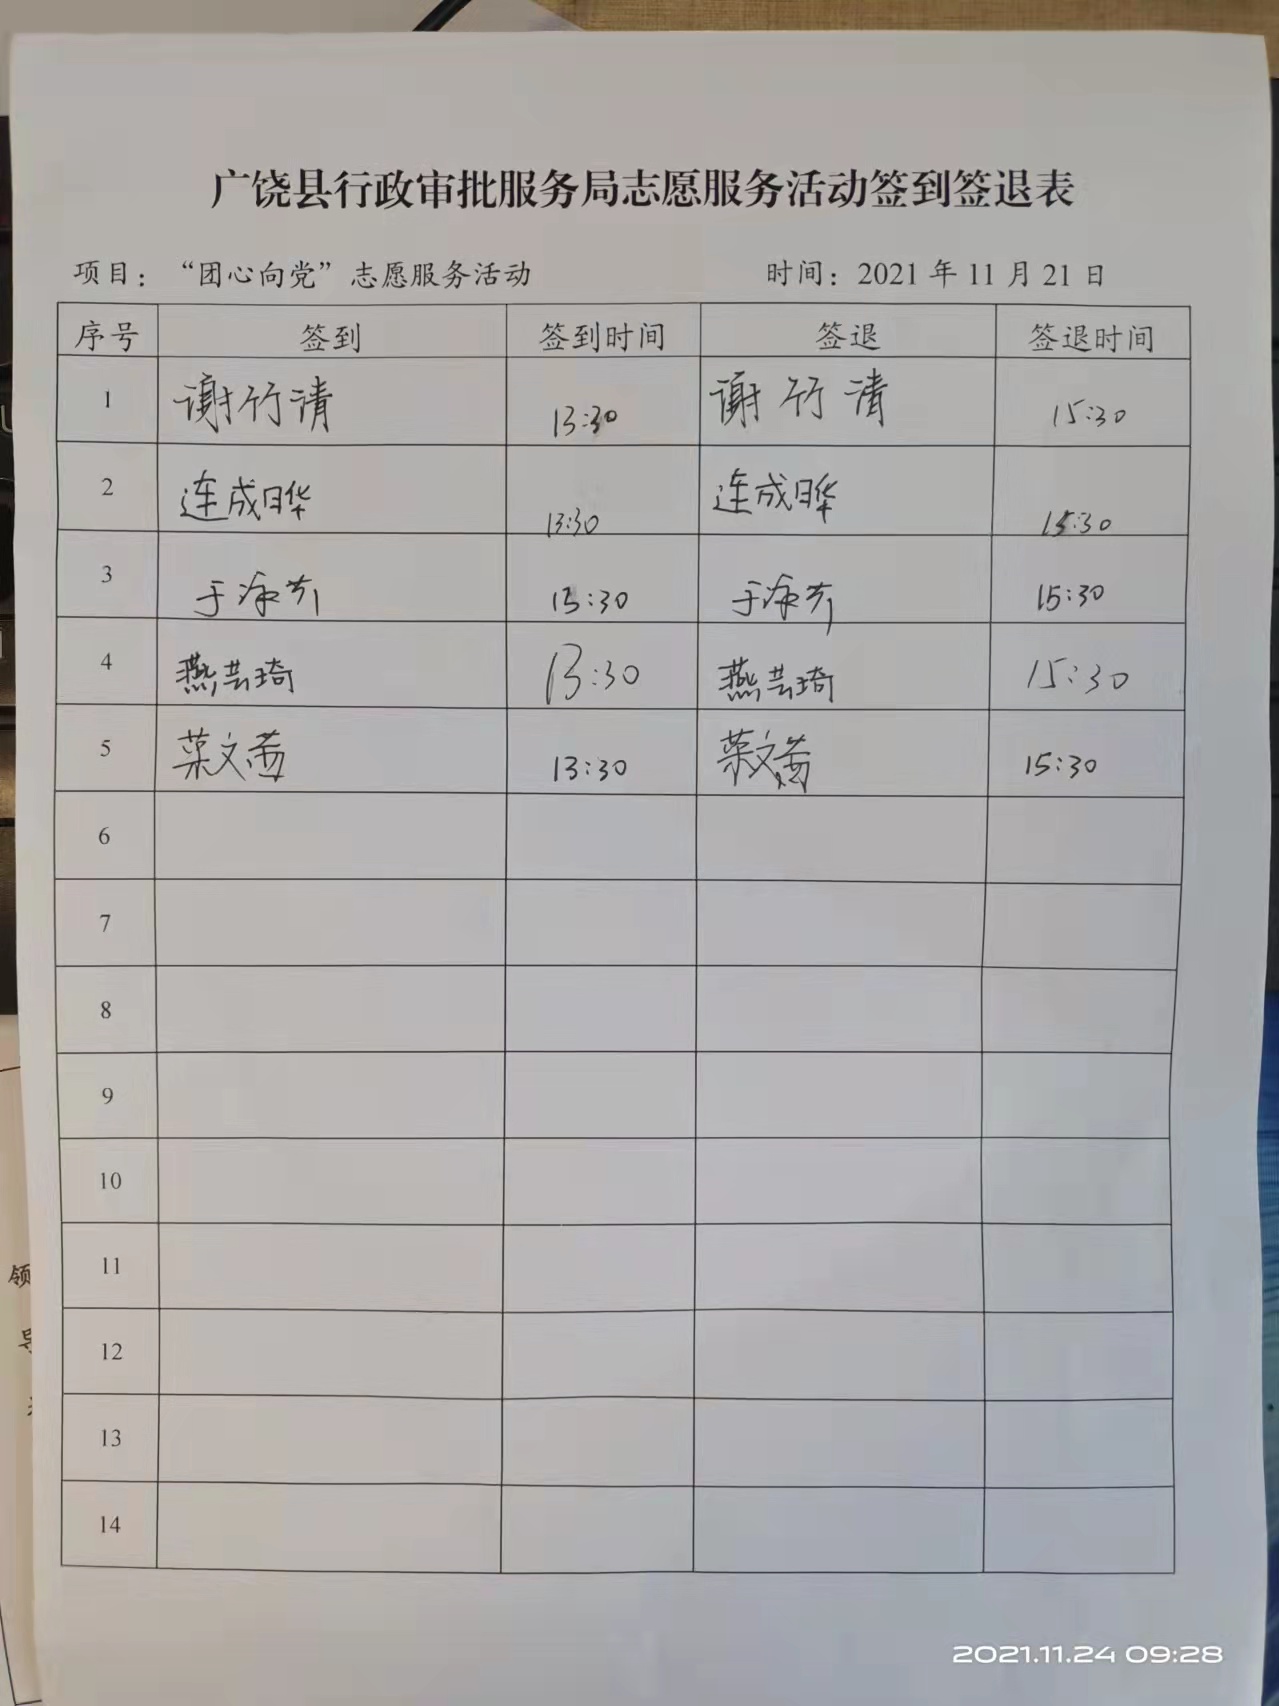 广饶县行政审批服务局志愿服务活动签到签退表
项目：“团心向党”志愿服务活动 时间：2021 年 11 月 21 日
序号 签到 签到时间 签退 签退时间
1 谢竹清 13:30 谢竹清 15:30
2 连成晔 13:30 连成晔 15:30
3 于 :30 于 15:30
4 燕芸琦 13:30 燕芸琦 15:30
5 文茜 13:30 文茜 15:30
6
7
8
9
10
11
12
13
14
领
导
2021.11.24 09:28